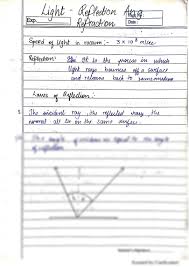 Light - Reflection And
Refraction
Exp.
Date:
Speed of light in vacuum :- 3 × 10⁸ m/sec
Reflection: It is the process in which
light rays bounces off a surface
and returns back to same medium
Laws of Reflection:
The incident ray, the reflected ray, the
normal all lie on the same surface.
The angle of incidence is equal to the angle
of reflection